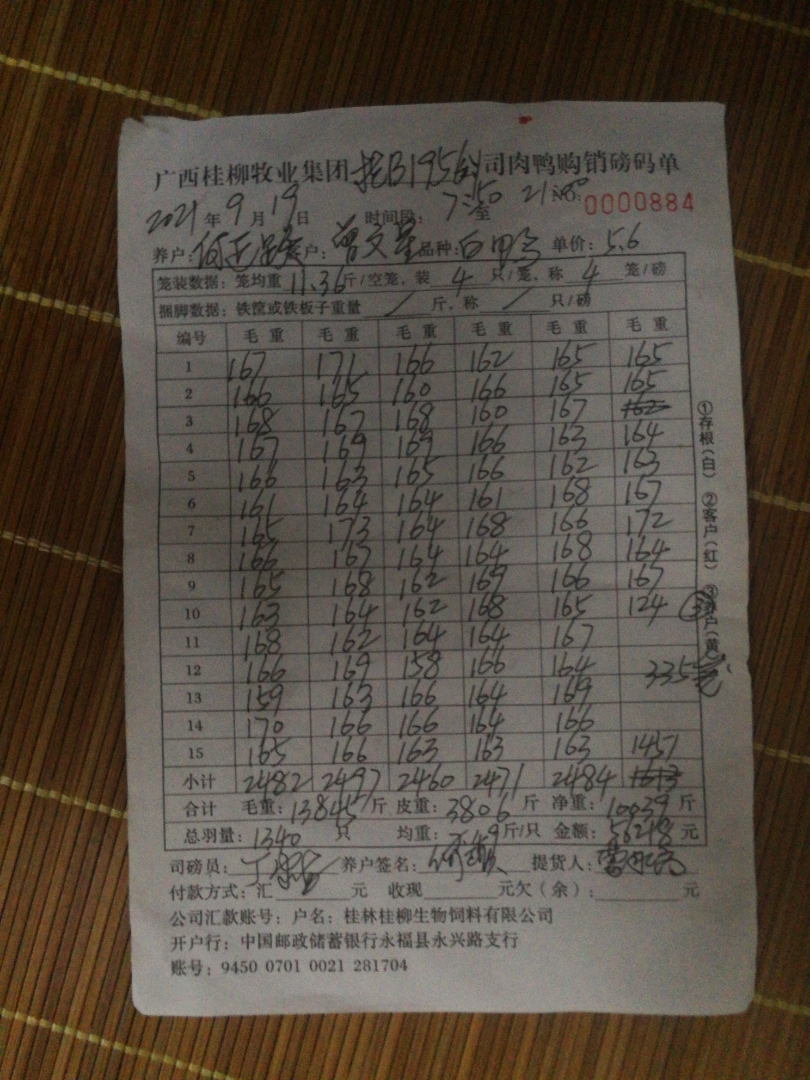 广西桂柳牧业集团 桂B195 司肉鸭购销磅码单
2021年9月19日 时间段: 7:50至21:00 No: 0000884
养户: 客户: 曾文 品种: 白 单价: 5.6
笼装数据: 笼均重 11.36 斤/空笼, 装 4 只/笼, 称 4 笼/磅
捆脚数据: 铁筐或铁板子重量 / 斤, 称 / 只/磅
编号 毛重 毛重 毛重 毛重 毛重 毛重
1 167 171 166 162 165 165
2 166 165 160 166 165 165
3 168 167 168 160 167 162
4 167 169 169 166 163 164
5 166 163 165 166 162 163
6 161 164 164 161 168 167
7 165 173 164 168 166 172
8 166 167 164 164 168 164
9 165 168 162 169 166 167
10 163 164 162 168 165 124 ③
11 168 162 164 164 167
12 166 169 158 166 164 335
13 159 163 166 164 169
14 170 166 166 164 166
15 165 166 163 163 163 1451
小计 2482 2497 2460 2471 2484 1613
合计 毛重: 13845 斤 皮重: 3806 斤 净重: 10039 斤
总羽量: 1340 只 均重: 7.49 斤/只 金额: 56218 元
司磅员: 养户签名: 提货人:
付款方式: 汇 元 收现 元欠(余): 元
公司汇款账号: 户名: 桂林桂柳生物饲料有限公司
开户行: 中国邮政储蓄银行永福县永兴路支行
账号: 9450 0701 0021 281704
①存根(白) ②客户(红) ③养户(黄)